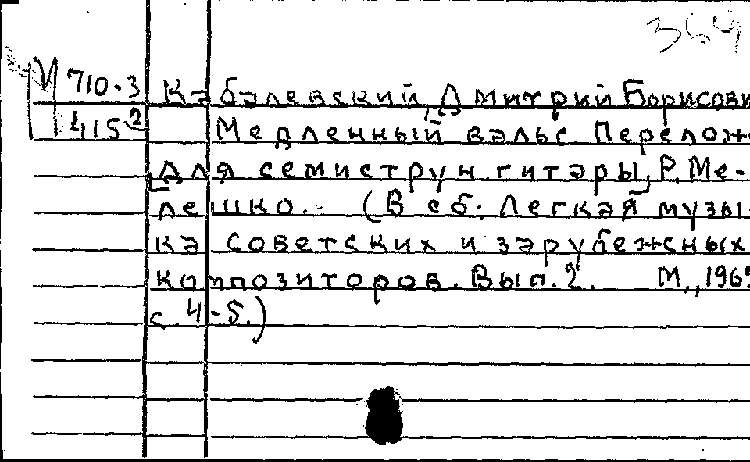 364
М 710.3 Кабалевский, Дмитрий Борисови
4152 Медленный вальс. Перелож
для семиструн. гитары Р. Ме-
лешко. (В сб: Легкая музы
ка советских и зарубежных
композиторов. Вып. 2. М., 1969
с. 4-5.)